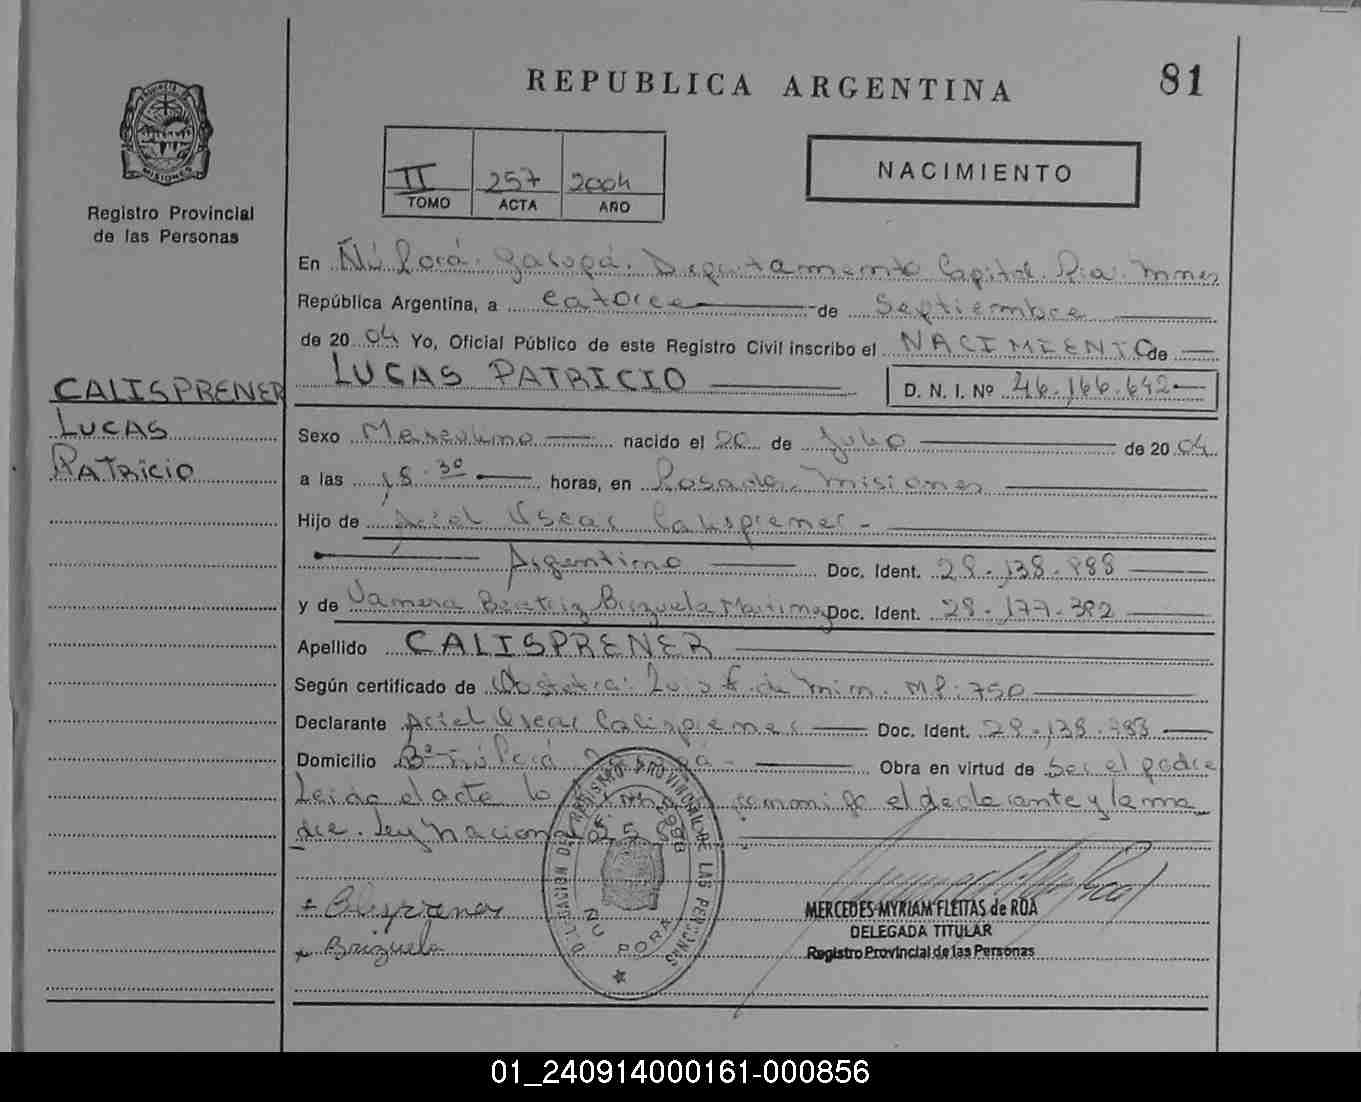 REPUBLICA ARGENTINA
81
Registro Provincial
de las Personas
II 257 2004
TOMO ACTA AÑO
NACIMIENTO
En Ñú Porá. Garupá. Departamento Capital. Pia. Mnes
República Argentina, a catorce de Septiembre
de 2004 Yo, Oficial Público de este Registro Civil inscribo el NACIMIENTO de
LUCAS PATRICIO D. N. I. Nº 46.166.642
CALISPRENER
LUCAS
PATRICIO
Sexo Masculino nacido el 20 de Julio de 2004
a las 18.30 horas, en Posadas. Misiones
Hijo de Ariel Oscar Calisprener
Argentino Doc. Ident. 28.138.988
y de Vanesa Beatriz Brizuela Martinez Doc. Ident. 28.177.382
Apellido CALISPRENER
Según certificado de Obstetra: Luis F. de Mim. MP: 750
Declarante Ariel Oscar Calisprener Doc. Ident. 28.138.988
Domicilio Bº Ñú Porá Obra en virtud de Ser el padre
Leida el acta lo conmigo el declarante y la ma
dre. Ley Nacional
DELEGACION DEL REGISTRO PROVINCIAL DE LAS PERSONAS
ÑU PORA
Calisprener
Brizuela
MERCEDES MYRIAM FLEITAS de ROA
DELEGADA TITULAR
Registro Provincial de las Personas
01_240914000161-000856